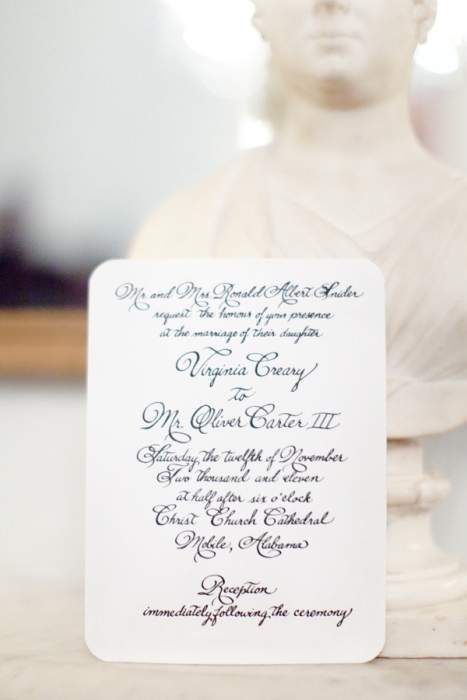 Mr. and Mrs. Ronald Albert Snider
request the honour of your presence
at the marriage of their daughter
Virginia Creary
to
Mr. Oliver Carter III
Saturday, the twelfth of November
Two thousand and eleven
at half after six o'clock
Christ Church Cathedral
Mobile, Alabama
Reception
immediately following the ceremony